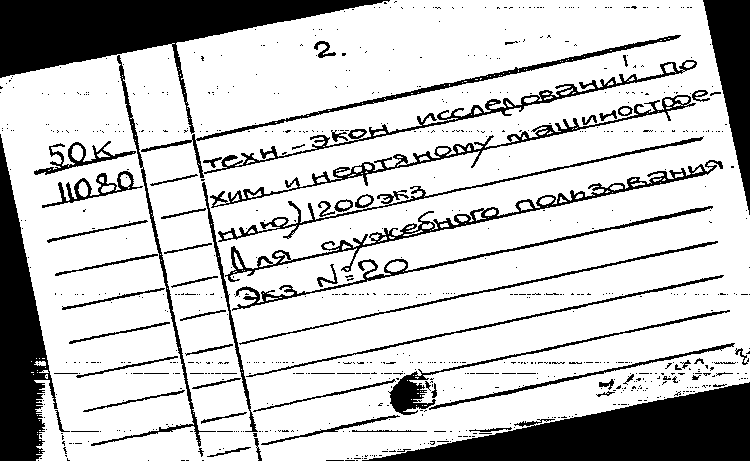 2.
50к
11080
техн.-экон. исследований по
хим. и нефтяному машинострое-
нию) 1200экз
Для служебного пользования.
Экз. №20